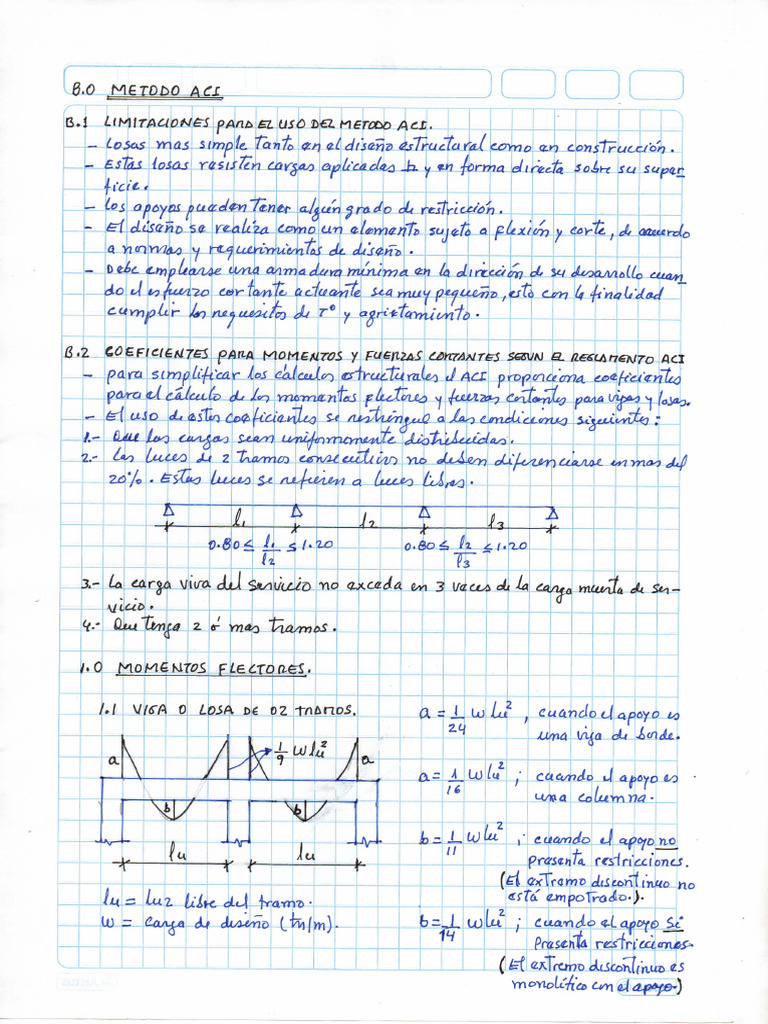 B.0 METODO ACI
B.1 LIMITACIONES PARA EL USO DEL METODO ACI.
- Losas mas simple tanto en el diseño estructural como en construcción.
- Estas losas resisten cargas aplicadas y en forma directa sobre su super
ficie.
- Los apoyos pueden tener algún grado de restricción.
- El diseño se realiza como un elemento sujeto a flexión y corte, de acuerdo
a normas y requerimientos de diseño.
- Debe emplearse una armadura mínima en la dirección de su desarrollo cuan
do el esfuerzo cortante actuante sea muy pequeño, esto con la finalidad
cumplir los requesitos de T° y agrietamiento.
B.2 COEFICIENTES PARA MOMENTOS Y FUERZAS CORTANTES SEGUN EL REGLAMENTO ACI
- para simplificar los cálculos estructurales el ACI proporciona coeficientes
para el cálculo de los momentos flectores y fuerzas cortantes para vigas y losas.
- El uso de estos coeficientes se restringue a las condiciones siguientes:
1.- Que las cargas sean uniformemente distribuidas.
2.- Las luces de 2 tramos consecutivos no deben diferenciarse en mas del
20%. Estas luces se refieren a luces libres.
l1 l2 l3
0.80 ≤ l1/l2 ≤ 1.20 0.80 ≤ l2/l3 ≤ 1.20
3.- La carga viva del servicio no exceda en 3 veces de la carga muerta de ser-
vicio.
4.- Que tenga 2 ó mas tramos.
1.0 MOMENTOS FLECTORES.
1.1 VIGA O LOSA DE 02 TRAMOS.
a 1/9 W lu² a
b b
lu lu
lu = luz libre del tramo.
W = carga de diseño (tn/m).
a = 1/24 W lu², cuando el apoyo es
una viga de borde.
a = 1/16 W lu²; cuando el apoyo es
una columna.
b = 1/11 W lu²; cuando el apoyo no
presenta restricciones.
(El extremo discontinuo no
está empotrado.).
b = 1/14 W lu²; cuando el apoyo Si
Presenta restricciones.
(El extremo discontinuo es
monolítico con el apoyo.)